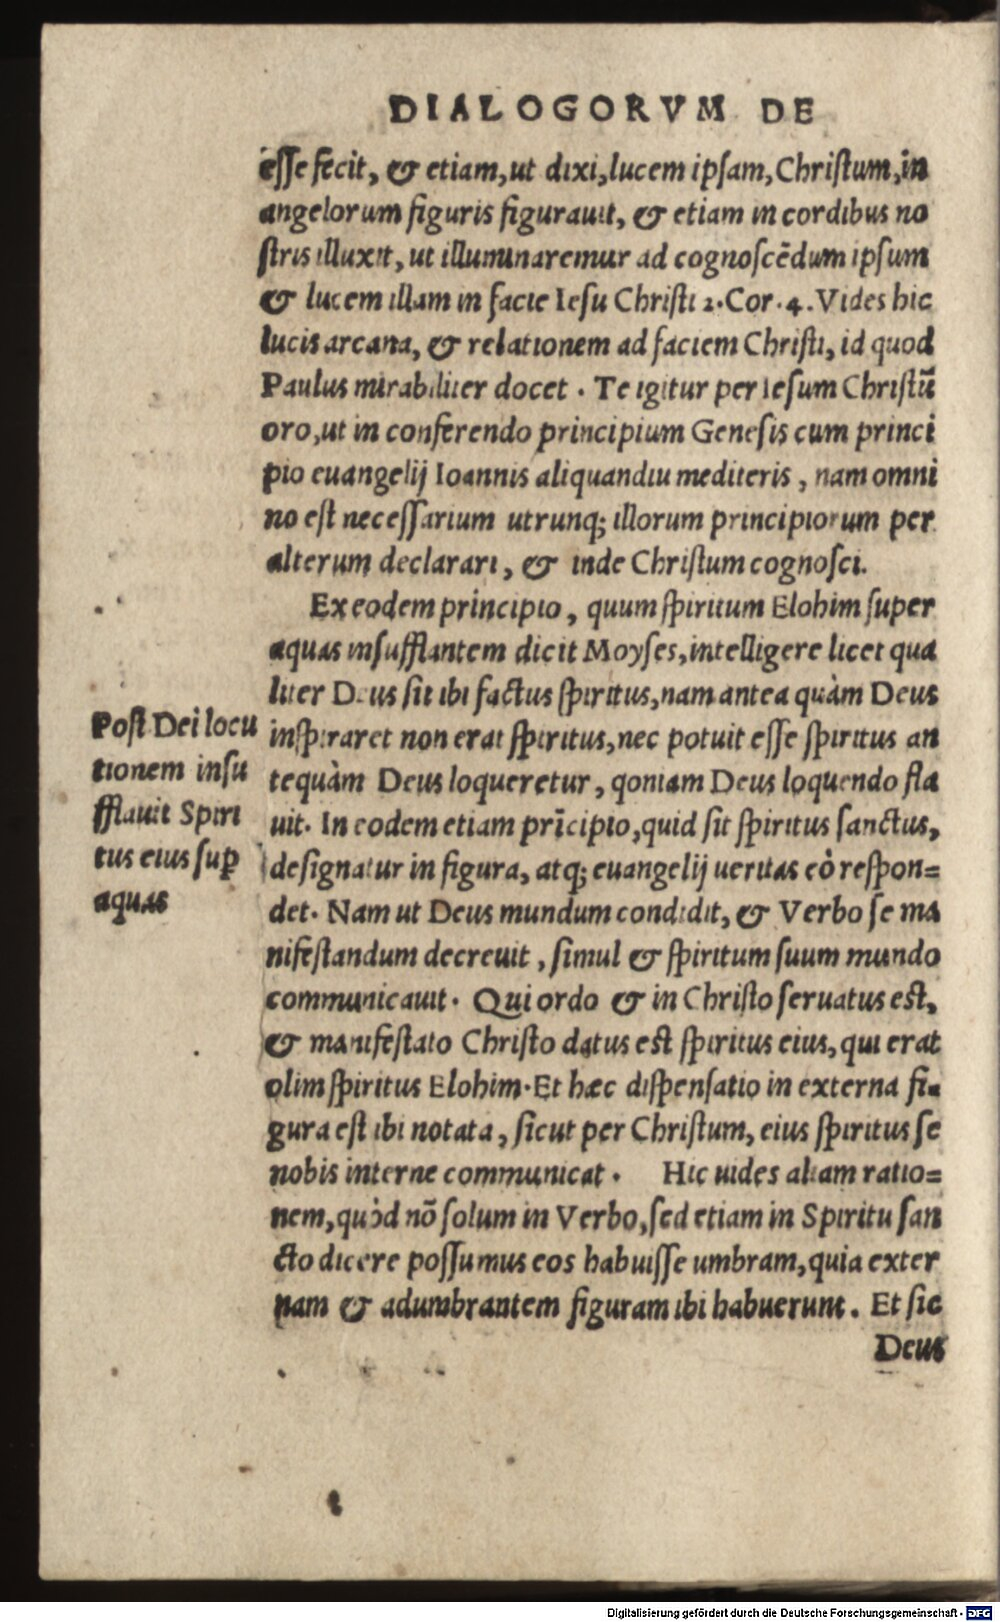 DIALOGORVM DE
esse fecit, & etiam, ut dixi, lucem ipsam, Christum, in
angelorum figuris figurauit, & etiam in cordibus no
stris illuxit, ut illuminaremur ad cognoscēdum ipsum
& lucem illam in facie Iesu Christi 2. Cor. 4. Vides hic
lucis arcana, & relationem ad faciem Christi, id quod
Paulus mirabiliter docet. Te igitur per Iesum Christū
oro, ut in conferendo principium Genesis cum princi
pio euangelij Ioannis aliquandiu mediteris, nam omni
no est necessarium utrunq; illorum principiorum per
alterum declarari, & inde Christum cognosci.
Ex eodem principio, quum spiritum Elohim super
aquas insufflantem dicit Moyses, intelligere licet qua
liter Deus sit ibi factus spiritus, nam antea quàm Deus
inspiraret non erat spiritus, nec potuit esse spiritus an
tequàm Deus loqueretur, qoniam Deus loquendo fla
uit. In eodem etiam prīcipio, quid sit spiritus sanctus,
designatur in figura, atq; euangelij ueritas eò respon=
det. Nam ut Deus mundum condidit, & Verbo se ma
nifestandum decreuit, simul & spiritum suum mundo
communicauit. Qui ordo & in Christo seruatus est,
& manifestato Christo datus est spiritus eius, qui erat
olim spiritus Elohim. Et hæc dispensatio in externa fi-
gura est ibi notata, sicut per Christum, eius spiritus se
nobis interne communicat. Hic uides aliam ratio=
nem, quòd nō solum in Verbo, sed etiam in Spiritu san
cto dicere possumus eos habuisse umbram, quia exter
nam & adumbrantem figuram ibi habuerunt. Et sic
Deus
Post Dei locu
tionem insu
fflauit Spiri
tus eius sup
aquas
Digitalisierung gefördert durch die Deutsche Forschungsgemeinschaft - DFG